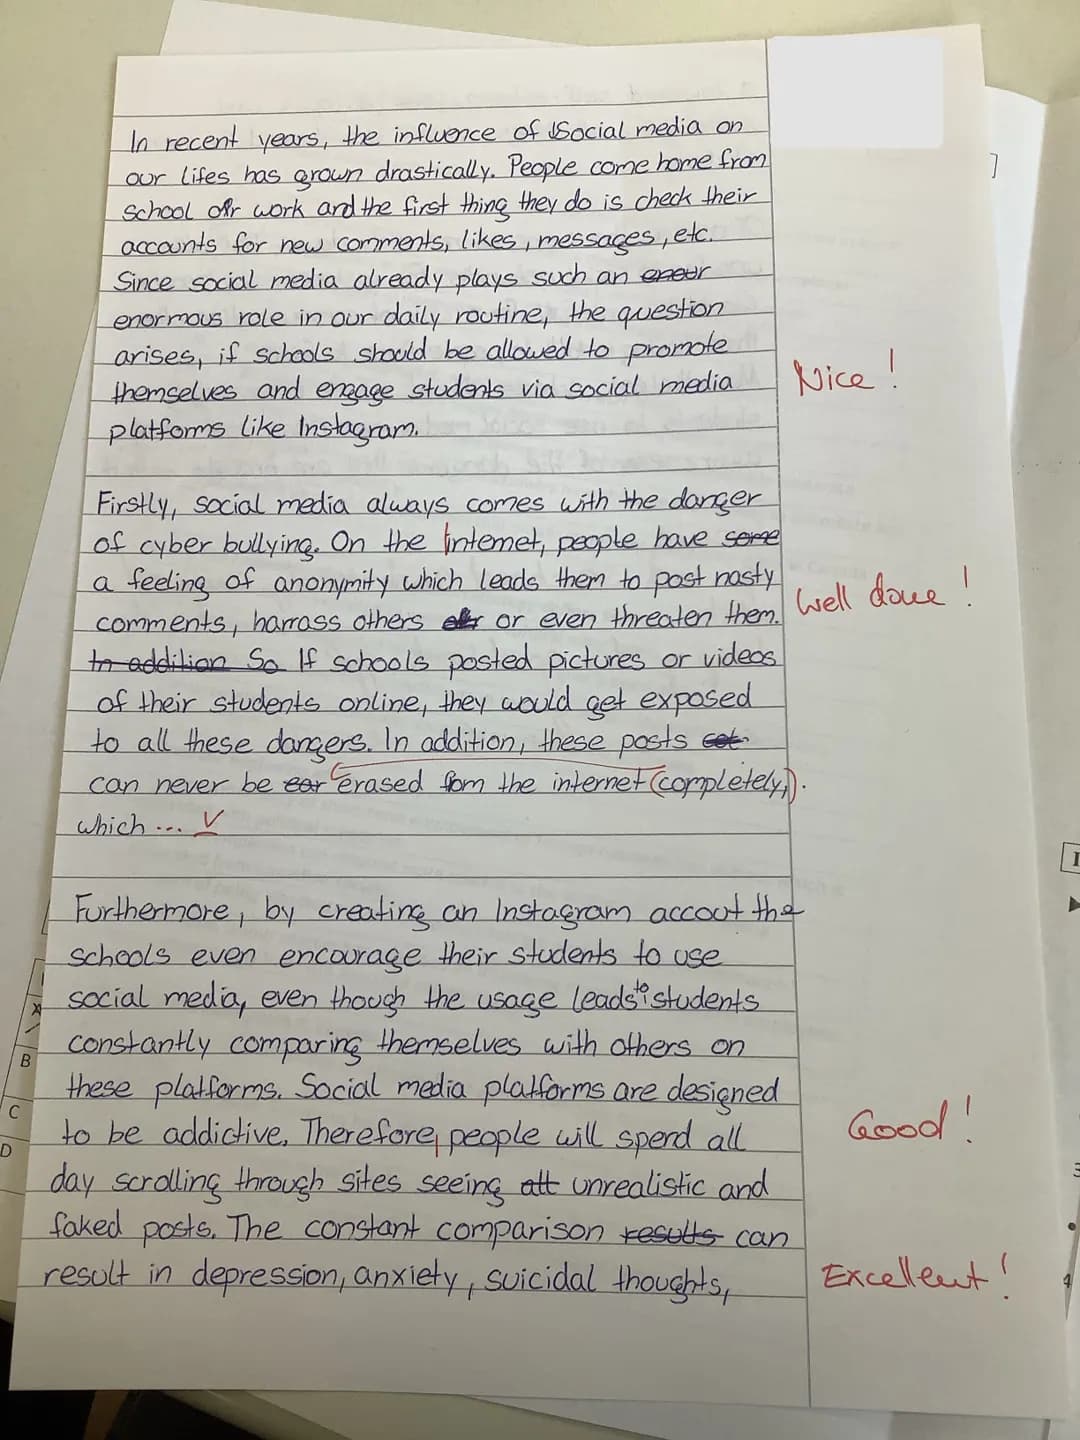 In recent years, the influence of Social media on
our lifes has grown drastically. People come home from
school or work and the first thing they do is check their
accounts for new comments, likes, messages, etc.
Since social media already plays such an eneur
enormous role in our daily routine, the question
arises, if schools should be allowed to promote
themselves and engage students via social media
Nice!
platforms like Instagram.
Firstly, social media always comes with the danger
of cyber bullying. On the internet, people have some
a feeling of anonymity which leads them to post nasty
Well done!
comments, harrass others or even threaten them.
In addition So If schools posted pictures or videos
of their students online, they would get exposed
to all these dangers. In addition, these posts cot
can never be ear erased from the internet (completely,).
which ... V
Furthermore, by creating an Instagram accout the
schools even encourage their students to use
social media, even though the usage leads to students
constantly comparing themselves with others on
these platforms. Social media platforms are designed
to be addictive. Therefore, people will spend all
Good!
day scrolling through sites seeing att unrealistic and
faked posts. The constant comparison results can
result in depression, anxiety, suicidal thoughts,
Excellent!
B
C
D